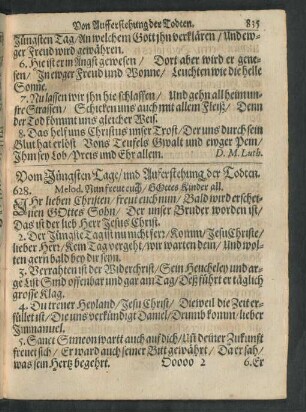 Von Aufferstehung der Todten. 835
Jüngsten Tag/ An welchem Gott ihn verklären/ Und ew-
ger Freud wird gewähren.
6. Hie ist er in Angst gewesen/ Dort aber wird er gene-
sen/ In ewger Freud und Wonne/ Leuchten wie die helle
Sonne.
7. Nu lassen wir ihn hie schlaffen/ Und gehn all heim un-
sre Strassen/ Schicken uns auch mit allem Fleiß/ Denn
der Tod kömmt uns gleicher Weis.
8. Das helf uns Christus unser Trost/ Der uns durch sein
Blut hat erlöst Vons Teufels Gwalt und ewger Pein/
Ihm sey Lob/ Preis und Ehr allein. D. M. Luth.
Vom Jüngsten Tage/ und Auferstehung der Todten.
628. Melod. Nun freut euch/ GOttes Kinder all.
IHr lieben Christen/ freut euch nun/ Bald wird erschei-
nen GOttes Sohn/ Der unser Bruder worden ist/
Das ist der lieb HErr Jesus Christ.
2. Der Jüngste Tag ist nu nicht fern/ Komm/ Jesu Christe/
lieber HErr/ Kein Tag vergeht/ wir warten dein/ Und wol-
ten gern bald bey dir seyn.
3. Verrahten ist der Widerchrist/ Sein Heucheley und ar-
ge List Sind offenbar und gar am Tag/ Deß führt er täglich
grosse Klag.
4. Du treuer Heyland/ Jesu Christ/ Dieweil die Zeit er-
füllet ist/ Die uns verkündigt Daniel/ Drumb komm/ lieber
Immanuel.
5. Sanct Simeon wartt auch auf dich/ Uñ deiner Zukunft
freuet sich/ Er ward auch seiner Bitt gewährt/ Da er sah/
was sein Hertz begehrt. Ooooo 2 6. Er